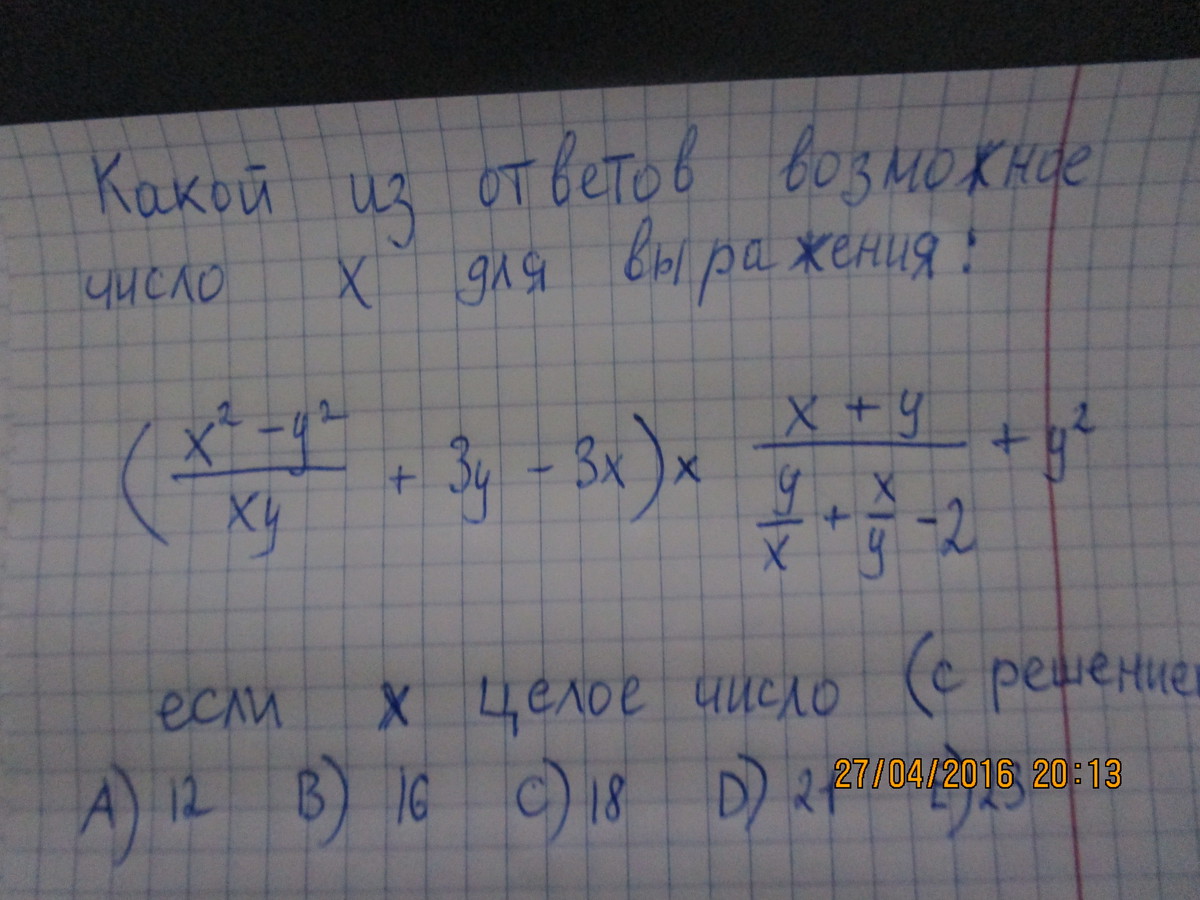 Какой из ответов возможное
число x для выражения:
(x² - y² / xy + 3y - 3x) × x + y / (y/x + x/y - 2) + y²
если x целое число (с решение
A) 12 B) 16 C) 18 D) 21
27/04/2016 20:13